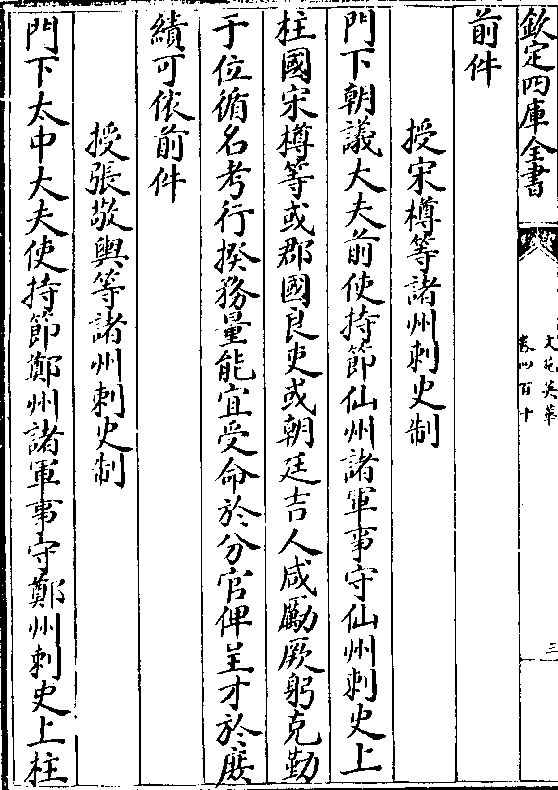 欽定四庫全書
文苑英華
卷四百十
三
前件
授宋樽等諸州刺史制
門下朝議大夫前使持節仙州諸軍事守仙州刺史上
柱國宋樽等或郡國良吏或朝廷吉人咸勵厥躬克勤
于位循名考行揆務量能宜受命於分官俾呈才於庶
績可依前件
授張敬輿等諸州刺史制
門下太中大夫使持節鄭州諸軍事守鄭州刺史上柱